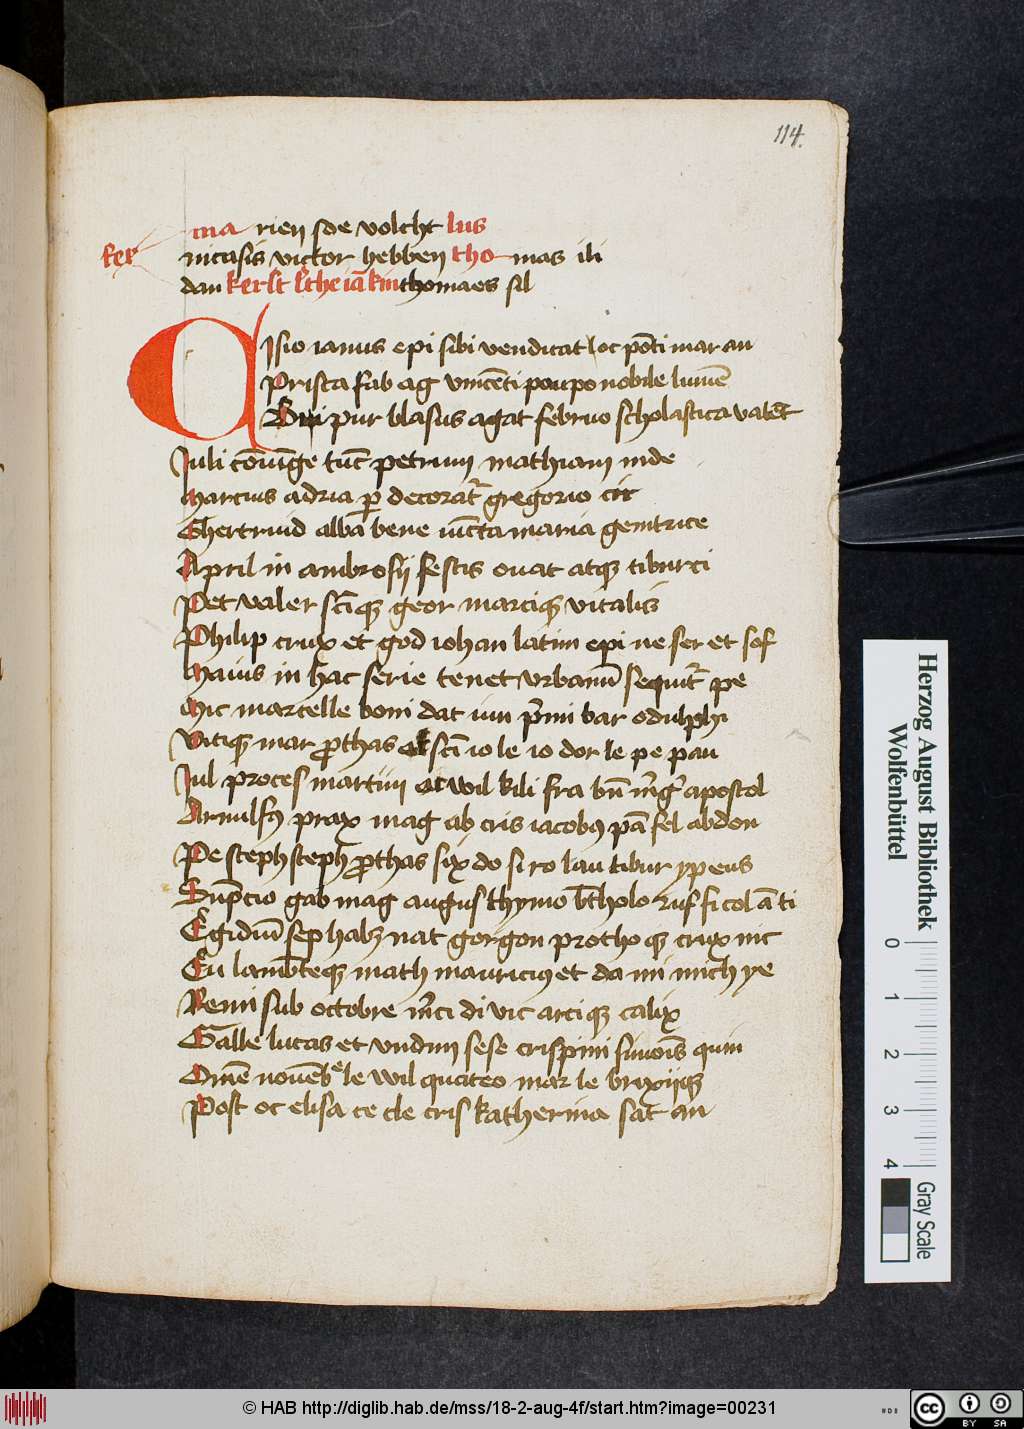 114.
ma rien sde volcht lus
ker nicasis victor hebben tho mas ili
dan kerst sthe iā kin thomaes sil
Cisio ianus epi sibi vendicat loc pōti mar an
Prisca fab ag vincēti pau po nobile lumē
Bri pur blasus agat februo scholastica valēt
Juli cōiūge tūc petrum mathiam inde
Marcius adria p decorat gregorio cir
Ghertrud alba bene iūcta maria genitrice
April in ambrosij festis ouat atq tiburci
Pet valer sctīq geor marciq vitalis
Philip crux et god iohan latin epi ne ser et sof
Maius in hac serie tenet vrbanū sequit pe
Nic marcelle boni dat iun pmi bar
Vitiq mar pthas et sctī io le io dor le pe pau
Jul proces martini wil kili fra bn apostol
Arnulfq prax mag ab cris iacobq pā fel abdon
Pe steph steph pthas six do si ro lau tibur yp eus
Sūpcio gab mag augus thymo btholo ruf fi col ā ti
Egidiū sep habz nat gorgon protho q crux nic
Eu lambteq math mauriciq et da mi mich ye
Remi sub octobre mci di vic arci q calix
Galle lucas et vndin sese crispini simōis quin
Omē nouēbe le wil quateo mar le brixijq
Post oc elisa ce cle cris katherina sat an
Herzog August Bibliothek
Wolfenbüttel
0 1 2 3 4
Gray Scale
© HAB http://diglib.hab.de/mss/18-2-aug-4f/start.htm?image=00231
cc BY SA